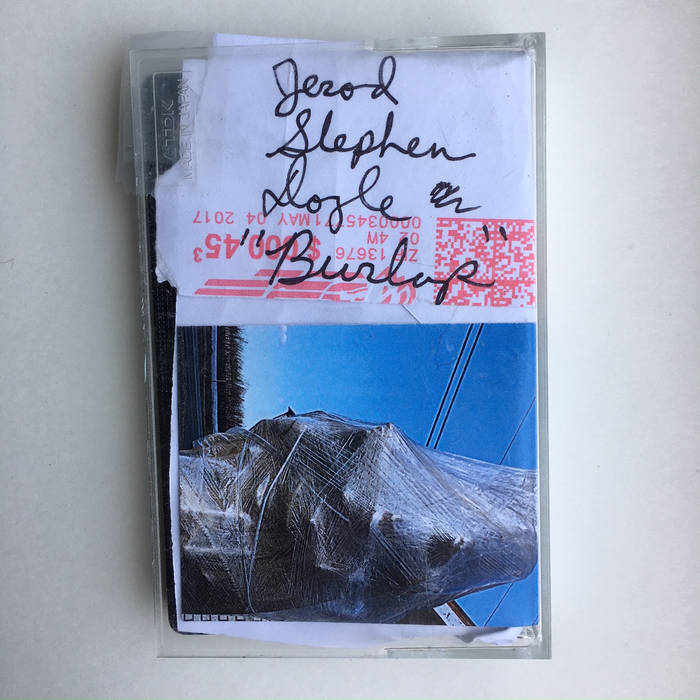 Jerod
Stephen
Doyle
"Burlap"
TDK
MADE IN JAPAN
ZIP 13676
02 4W
0000345771 MAY 04 2017
$000.45³